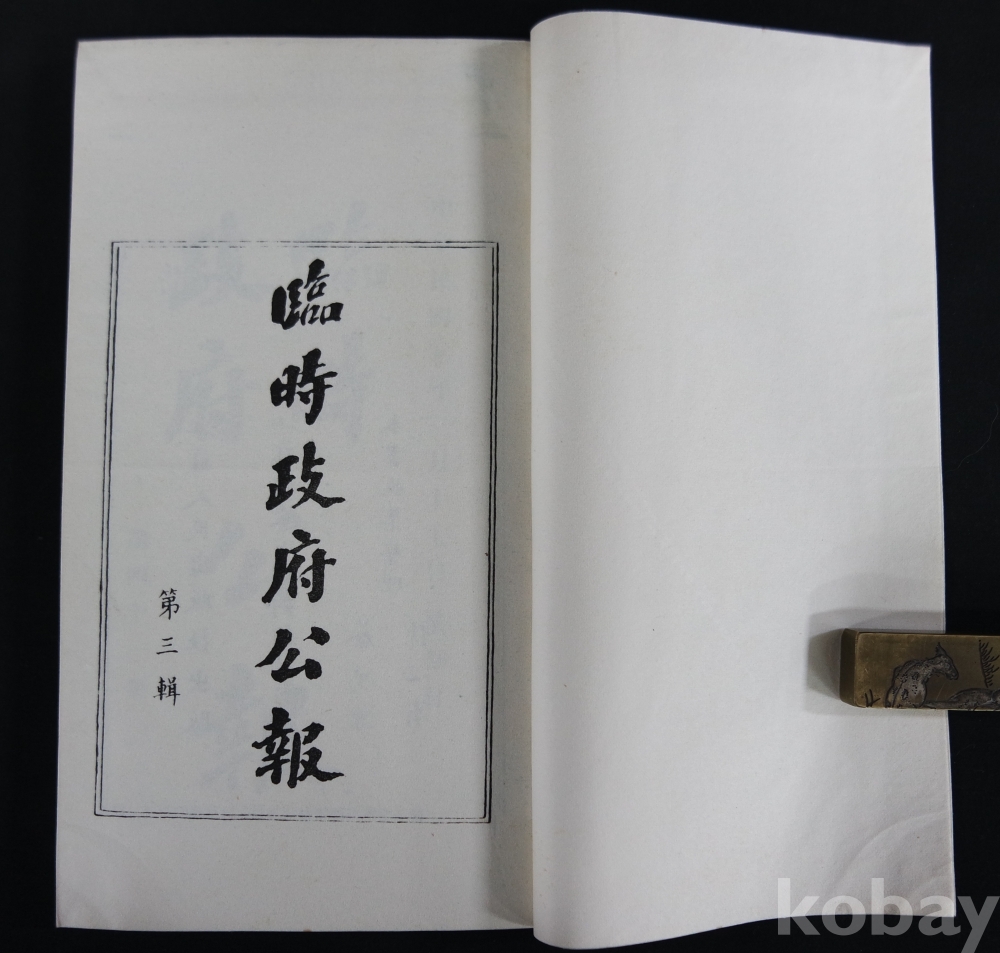 臨時政府公報
第三輯
kobay